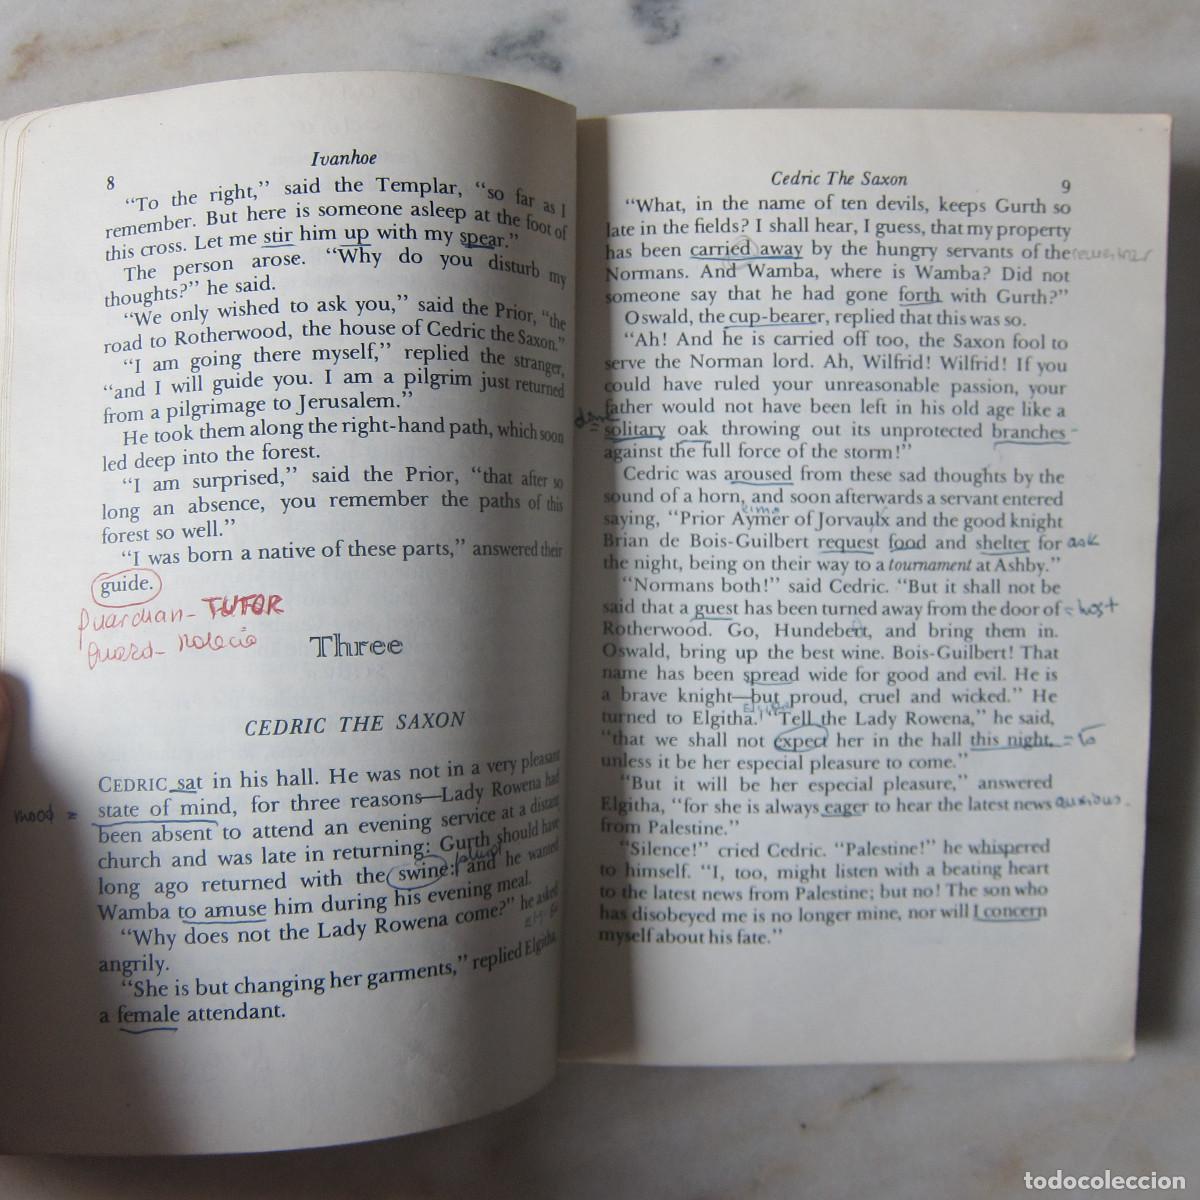 8
Ivanhoe
"To the right," said the Templar, "so far as I
remember. But here is someone asleep at the foot of
this cross. Let me stir him up with my spear."
The person arose. "Why do you disturb my
thoughts?" he said.
"We only wished to ask you," said the Prior, "the
road to Rotherwood, the house of Cedric the Saxon."
"I am going there myself," replied the stranger,
"and I will guide you. I am a pilgrim just returned
from a pilgrimage to Jerusalem."
He took them along the right-hand path, which soon
led deep into the forest.
"I am surprised," said the Prior, "that after so
long an absence, you remember the paths of this
forest so well."
"I was born a native of these parts," answered their
guide.
guardian - TUTOR
guard -
Three
CEDRIC THE SAXON
CEDRIC sat in his hall. He was not in a very pleasant
mood = state of mind, for three reasons—Lady Rowena had
been absent to attend an evening service at a distant
church and was late in returning: Gurth should have
plural
long ago returned with the swine: and he wanted
Wamba to amuse him during his evening meal.
"Why does not the Lady Rowena come?" he asked
angrily.
"She is but changing her garments," replied Elgitha,
a female attendant.
Cedric The Saxon
9
"What, in the name of ten devils, keeps Gurth so
late in the fields? I shall hear, I guess, that my property
has been carried away by the hungry servants of the
Normans. And Wamba, where is Wamba? Did not
someone say that he had gone forth with Gurth?"
Oswald, the cup-bearer, replied that this was so.
"Ah! And he is carried off too, the Saxon fool to
serve the Norman lord. Ah, Wilfrid! Wilfrid! If you
could have ruled your unreasonable passion, your
father would not have been left in his old age like a
solitary oak throwing out its unprotected branches
against the full force of the storm!"
Cedric was aroused from these sad thoughts by the
sound of a horn, and soon afterwards a servant entered
saying, "Prior Aymer of Jorvaulx and the good knight
Brian de Bois-Guilbert request food and shelter for ask
the night, being on their way to a tournament at Ashby."
"Normans both!" said Cedric. "But it shall not be
said that a guest has been turned away from the door of = host
Rotherwood. Go, Hundebert, and bring them in.
Oswald, bring up the best wine. Bois-Guilbert! That
name has been spread wide for good and evil. He is
a brave knight—but proud, cruel and wicked." He
Elgitha
turned to Elgitha. "Tell the Lady Rowena," he said,
"that we shall not expect her in the hall this night, = to
unless it be her especial pleasure to come."
"But it will be her especial pleasure," answered
Elgitha, "for she is always eager to hear the latest news anxious
from Palestine."
"Silence!" cried Cedric. "Palestine!" he whispered
to himself. "I, too, might listen with a beating heart
to the latest news from Palestine; but no! The son who
has disobeyed me is no longer mine, nor will I concern
myself about his fate."
todocoleccion